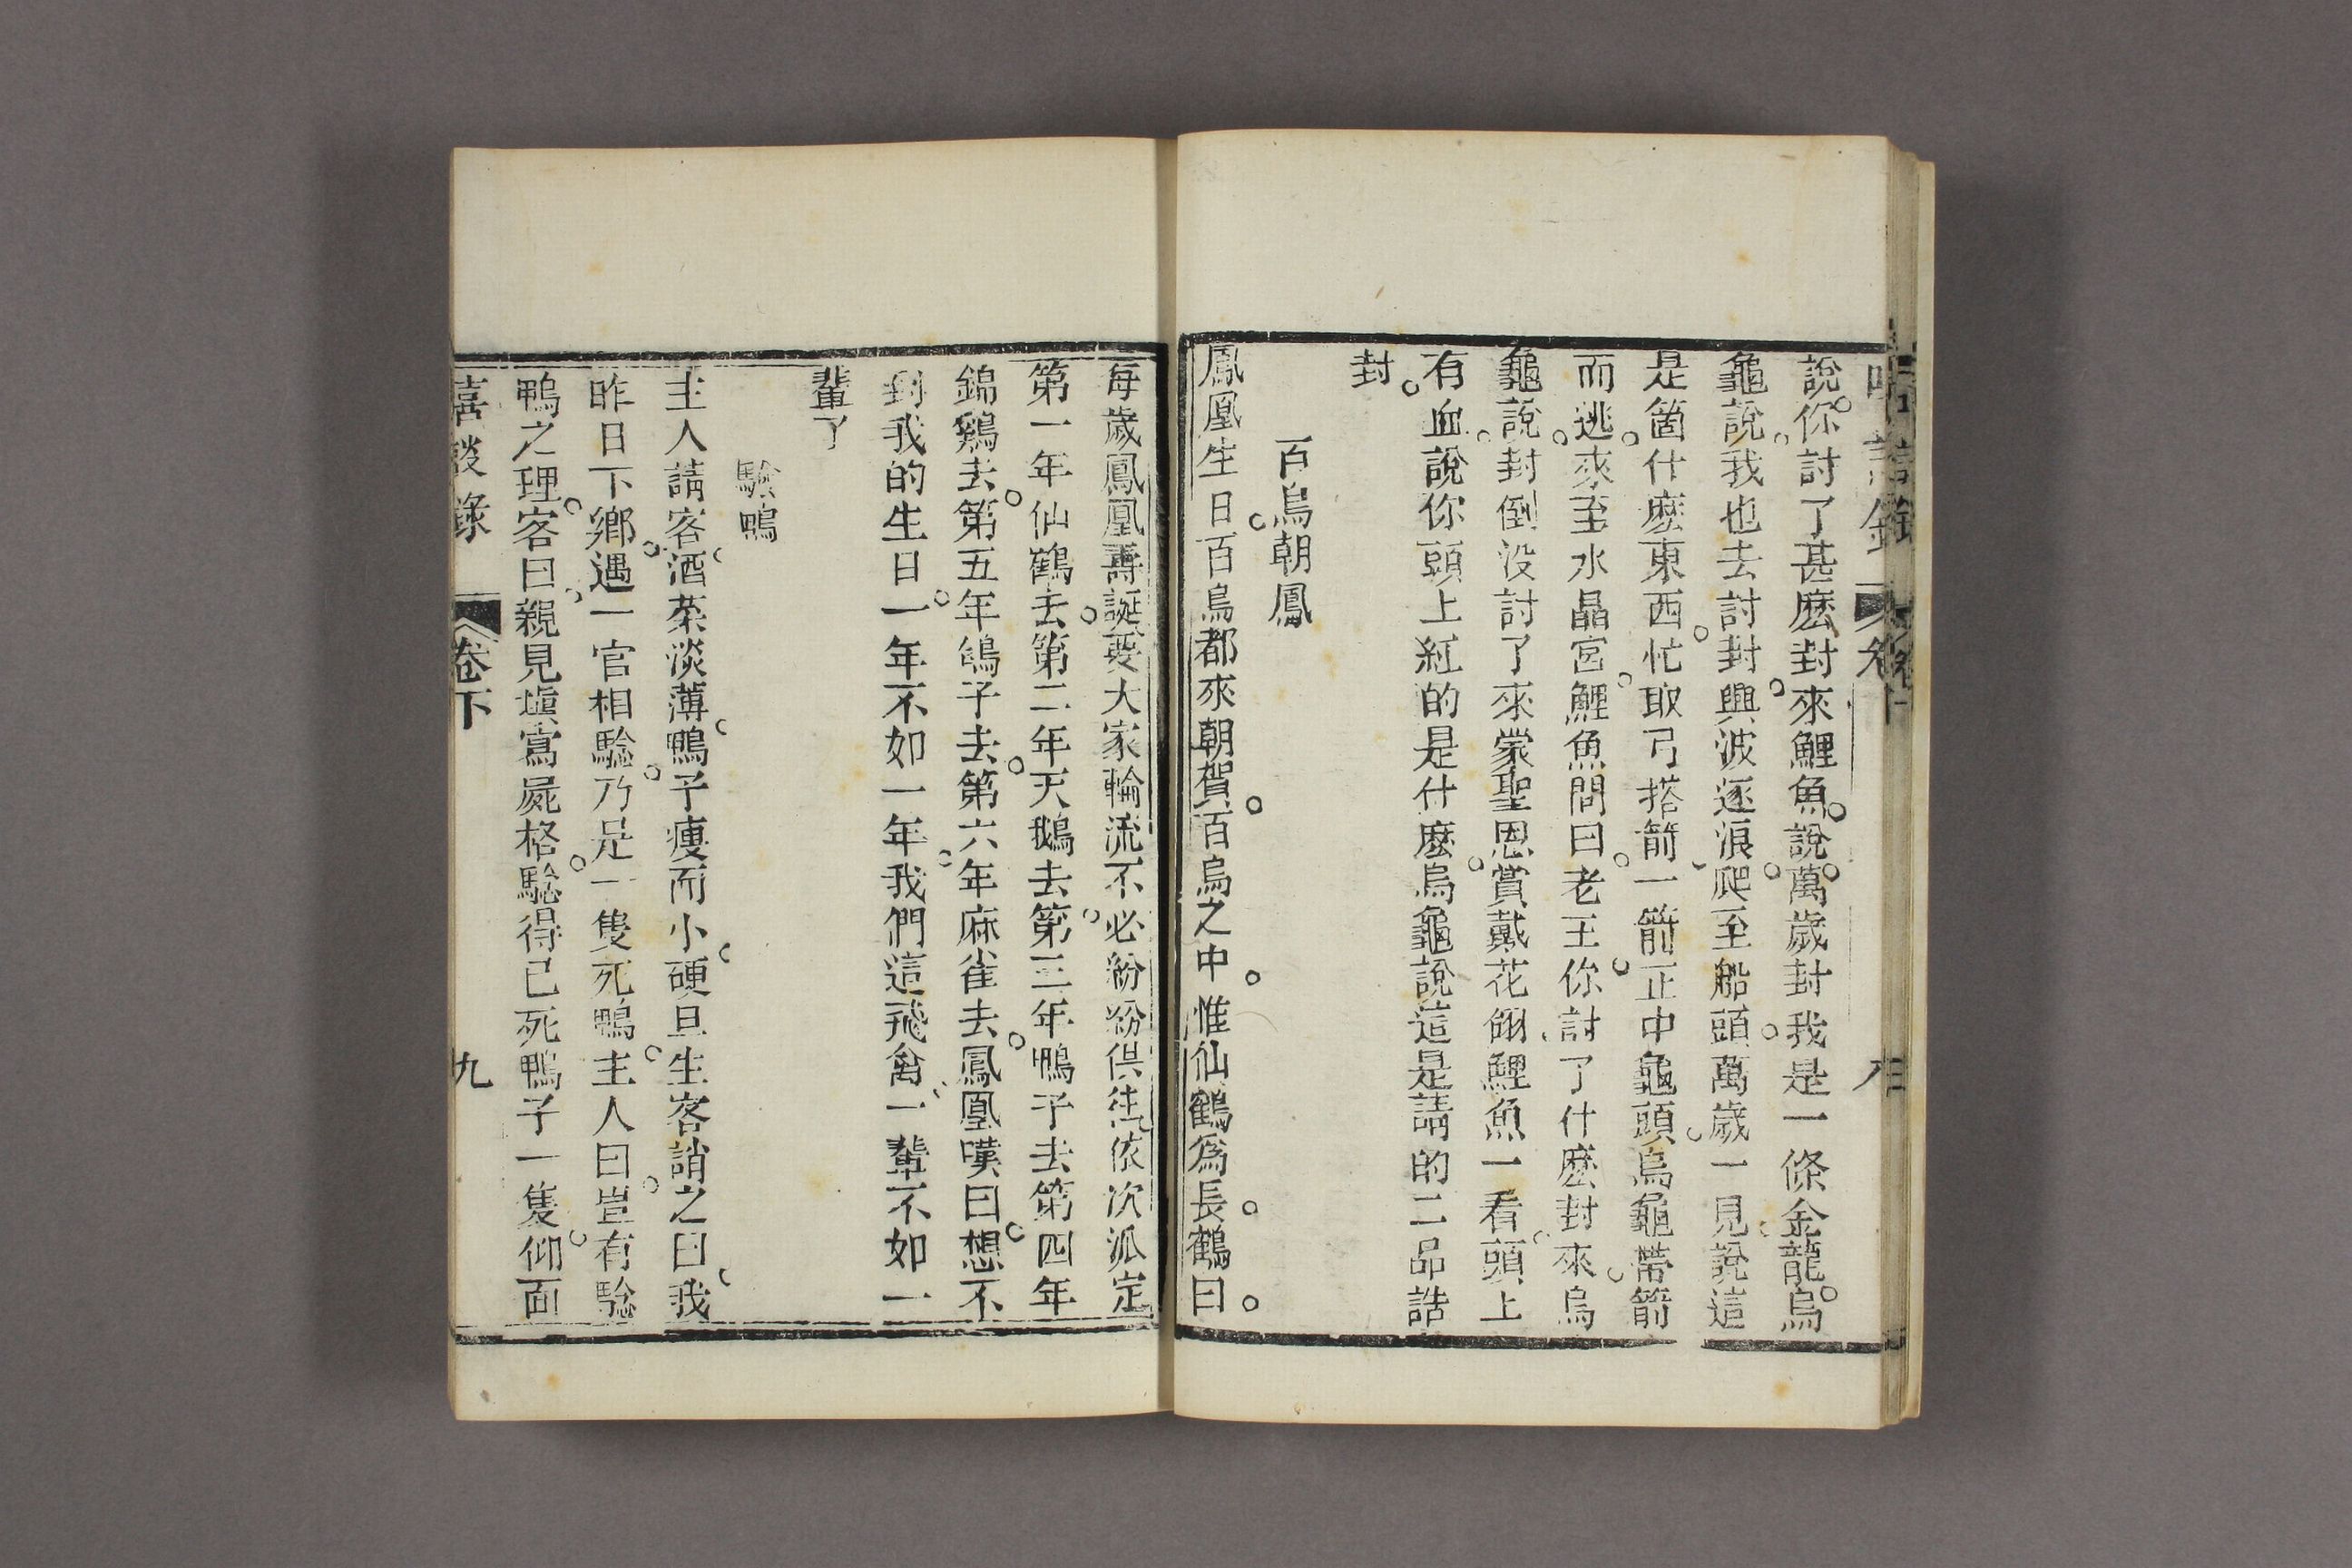 說。你討了甚麽封來鯉魚。說。萬歲封我是一條金龍。烏
龜說。我也去討封。興波逐浪。爬至船頭。萬歲一見。說這
是箇什麽東西。忙取弓搭箭、一箭正中龜頭。烏龜帶箭
而逃。來至水晶宮。鯉魚問曰。老王。你討了什麽封來。烏
龜說。封倒没討了來。蒙聖恩賞戴花翎、鯉魚一看。頭上
有血。說你頭上紅的是什麽。烏龜說這是請的二品誥
封。
百鳥朝鳳
鳳凰生日。百鳥都來朝賀。百鳥之中。惟仙鶴爲長。鶴曰。
每歲鳳凰壽誕要大家輪流不必紛紛俱徃依次派定
第一年仙鶴去。第二年天鵝去。第三年鴨子去第四年
錦鷄去。第五年鴿子去。第六年麻雀去。鳳凰嘆曰。想不
到我的生日。一年不如一年。我們這飛禽、一輩不如一
輩了
騐鴨
主人請客。酒菜淡薄。鴨子瘦而小。硬且生客誚之曰。我
昨日下鄉。遇一官相騐。乃是一隻死鴨。主人曰。豈有騐
鴨之理。客曰。親見塡寫屍格。騐得已死鴨子一隻。仰面
喜談錄 卷下 九